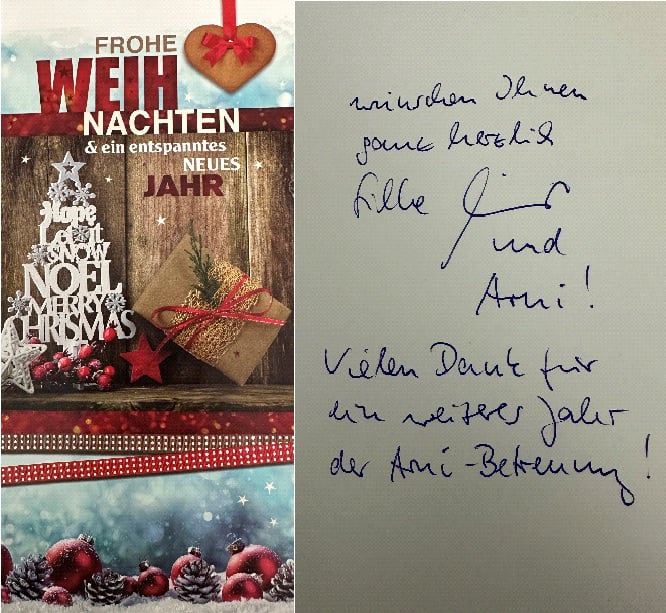 FROHE
WEIH
NACHTEN
& ein entspanntes
NEUES
JAHR
Hope
Let it
SNOW
NOEL
MERRY
CHRISMAS
wünschen Ihnen
ganz herzlich
Silke
und
Arni!
Vielen Dank für
ein weiteres Jahr
der Arni-Betreuung!